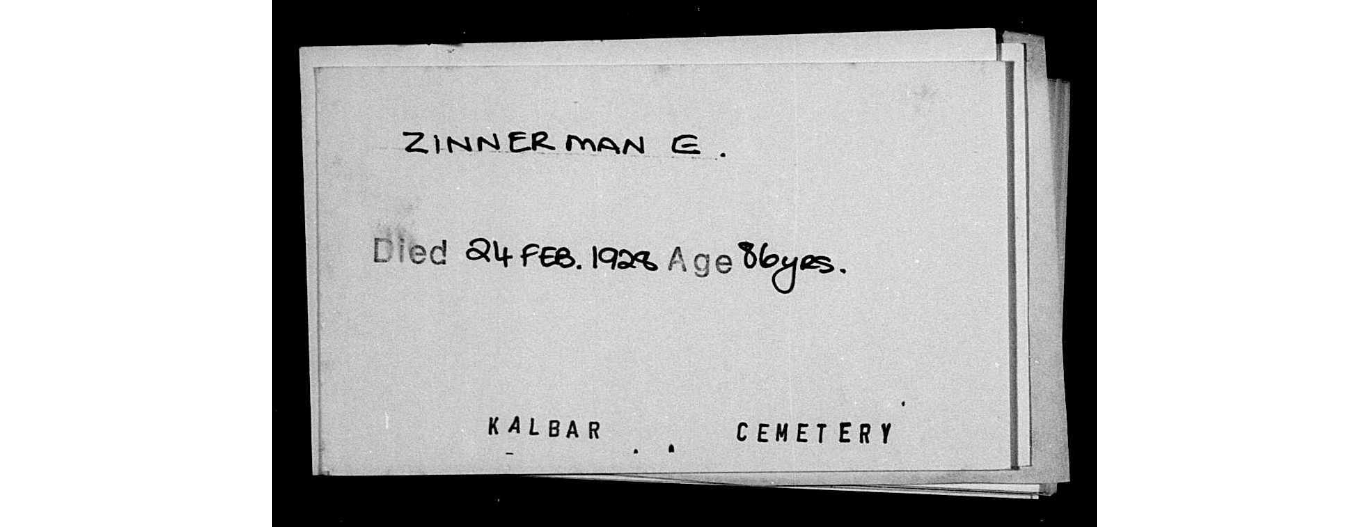 ZINNERMAN E.
Died 24 FEB. 1928 Age 86yrs.
KALBAR CEMETERY